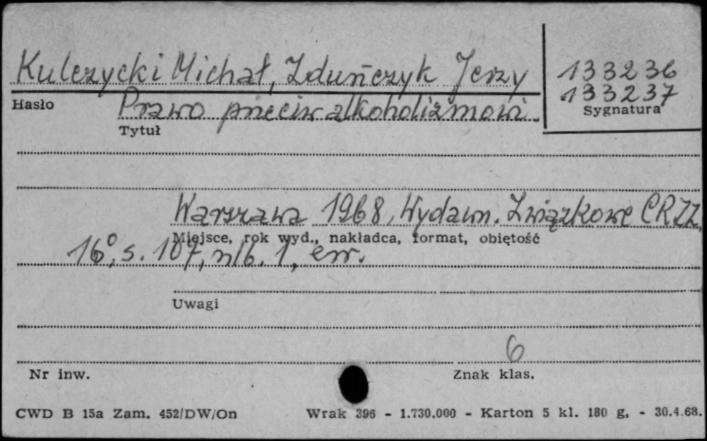 Kulczycki Michał, Zduńczyk Jerzy
133236
133237
Hasło
Prawo przeciw alkoholizmowi.
Sygnatura
Tytuł
Warszawa 1968, Wydawn. Związkowe CRZZ,
Miejsce, rok wyd., nakładca, format, obiętość
16°, s. 107, nlb. 1, err.
Uwagi
6
Nr inw.
Znak klas.
CWD B 15a Zam. 452/DW/On
Wrak 396 - 1.730.000 - Karton 5 kl. 180 g. - 30.4.68.